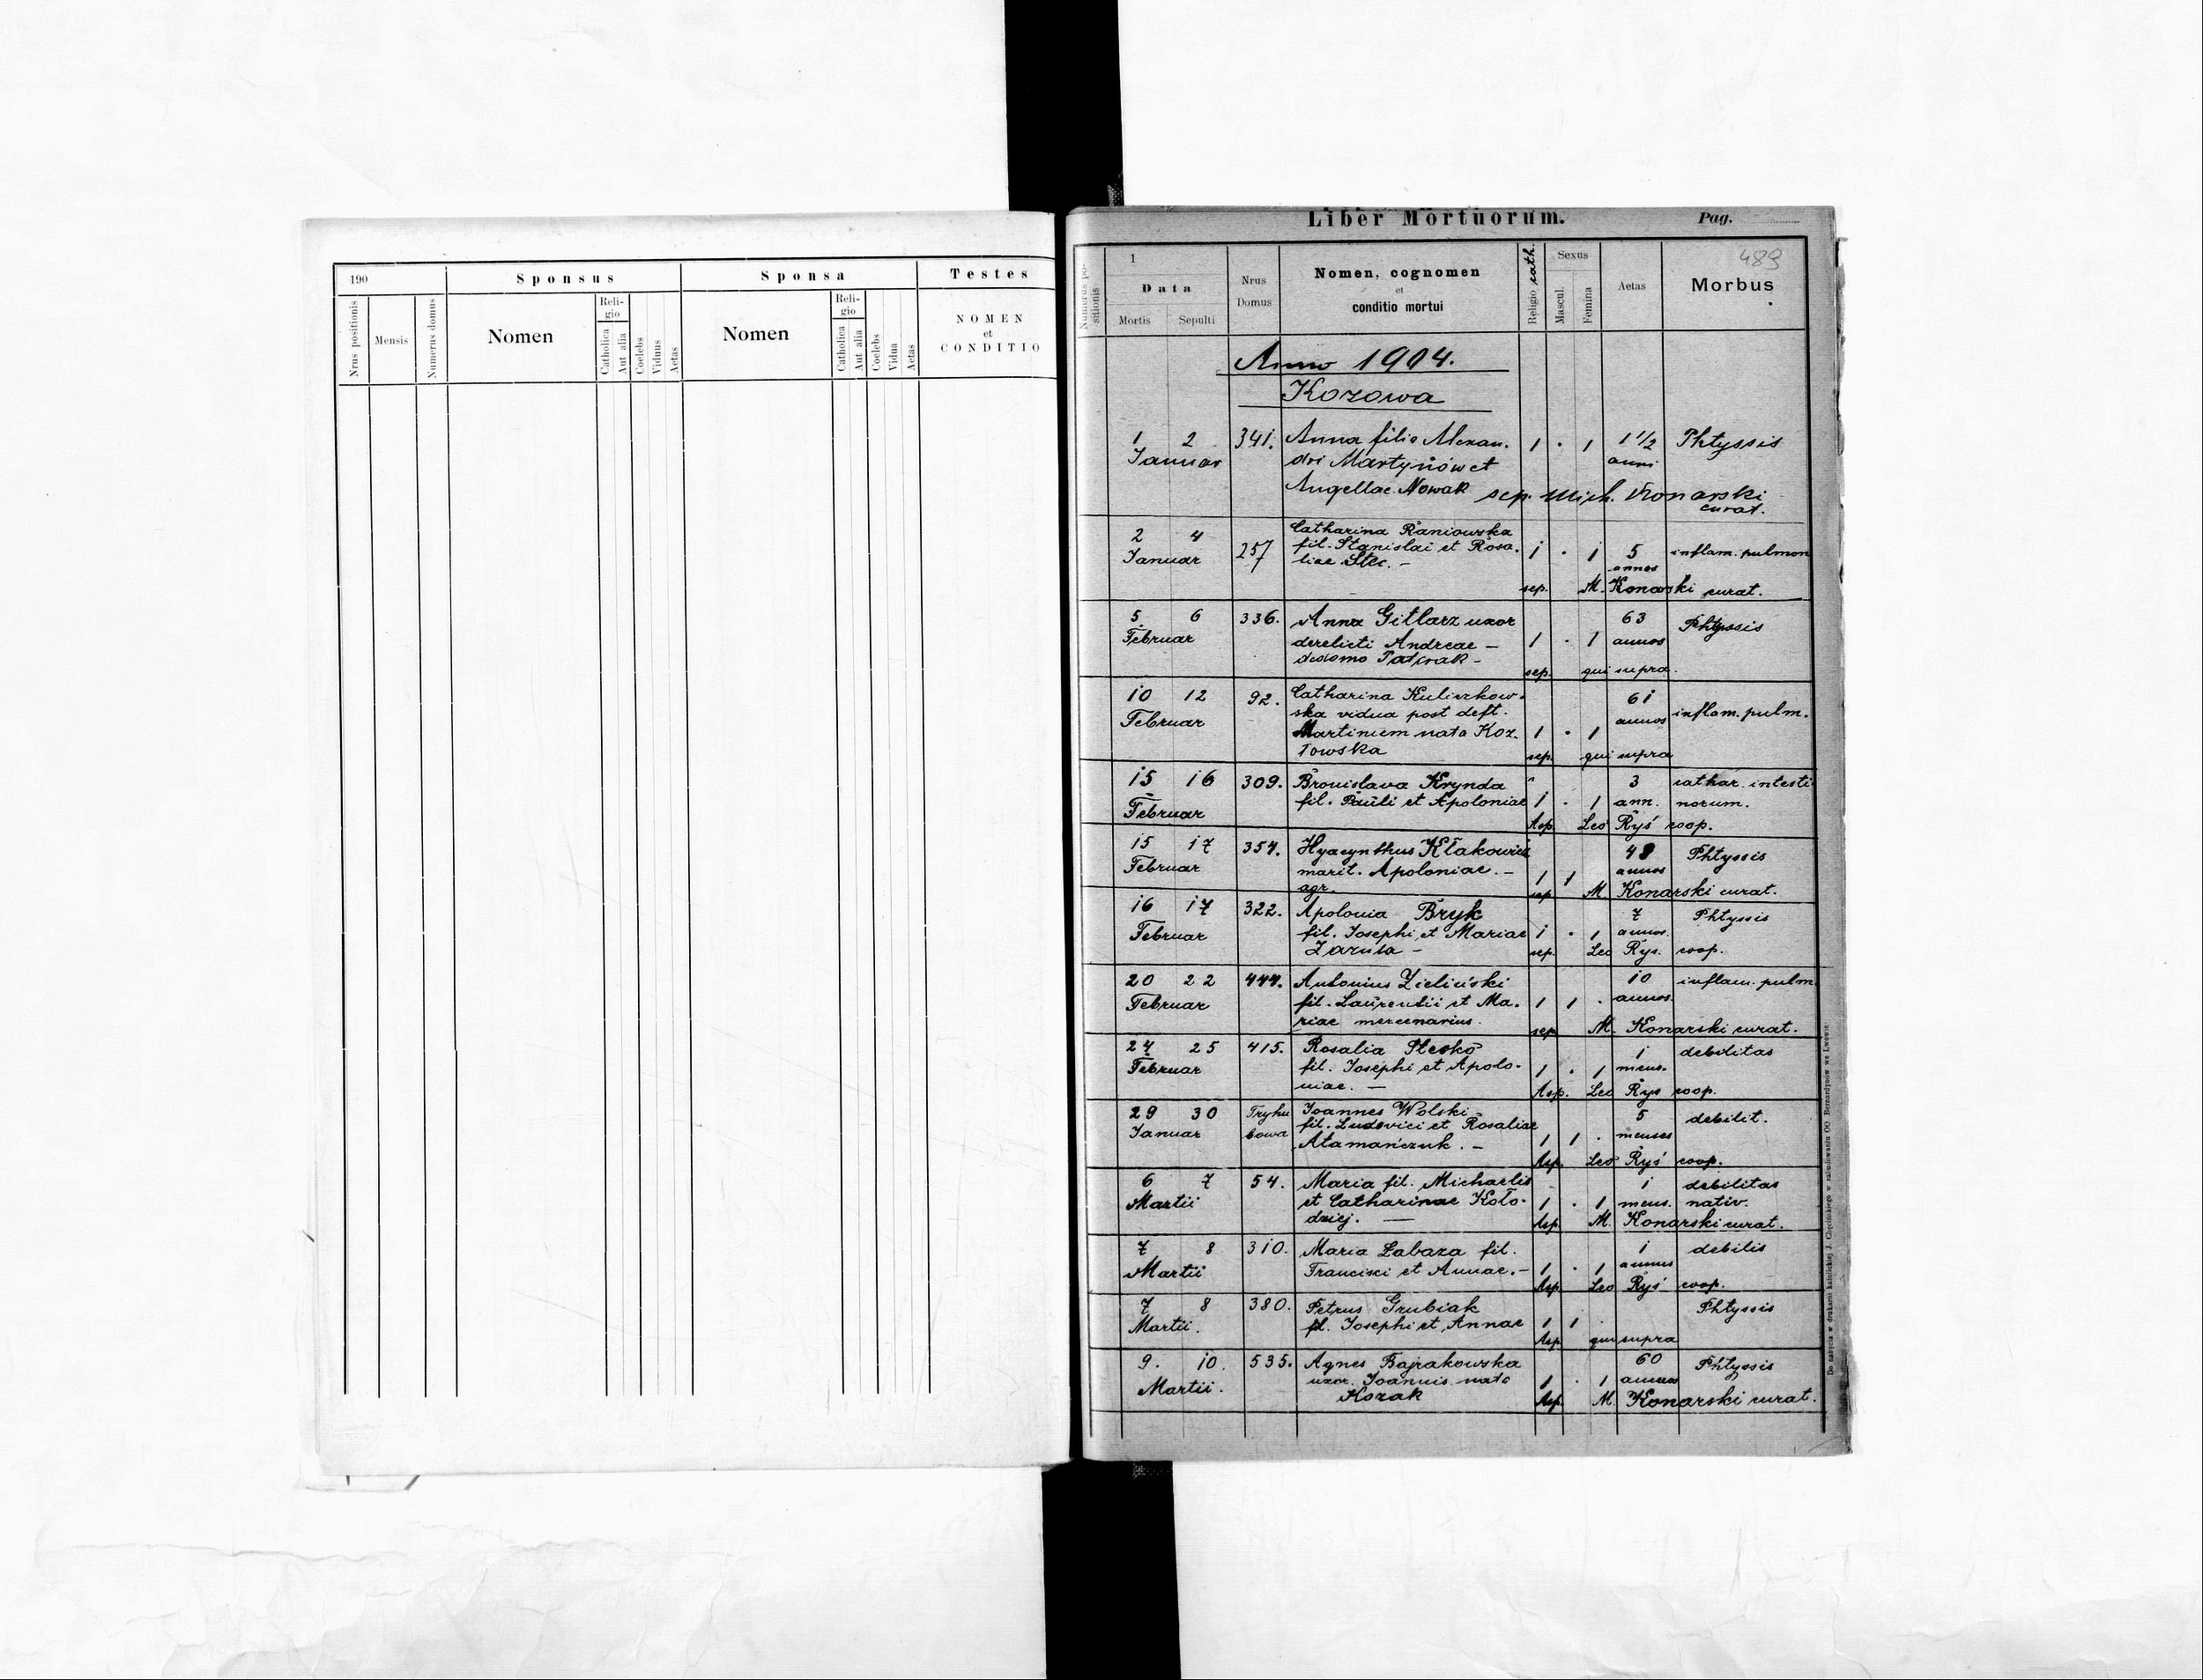 190
Sponsus
Sponsa
Testes
Nrus positionis
Mensis
Numerus domus
Nomen
Religio
Catholica
Aut alia
Coelebs
Viduus
Aetas
Nomen
Religio
Catholica
Aut alia
Coelebs
Vidua
Aetas
NOMEN
et
CONDITIO
Liber Mortuorum.
Pag.
489
Numerus positionis
1
Data
Mortis
Sepulti
Nrus
Domus
Nomen, cognomen
et
conditio mortui
Religio cath.
Sexus
Mascul.
Femina
Aetas
Morbus
Anno 1904.
Kozowa
1 2 341. Anna filia Alexan- 1 · 1 1 1/2 Phtyssis
Januar dri Martynów et anni
Angellae Nowak sep. Mich. Konarski
curat.
2 4 257 Catharina Raniowska
Januar fil. Stanislai et Rosa- 1 · 1 5 inflam. pulmon
liae Stec. - annos
sep. M. Konarski curat.
5 6 336. Anna Gitlarz uxor 63 Phtyssis
Februar derelicti Andreae - 1 · 1 annos
de domo
sep. qui supra.
10 12 92. Catharina Kuliczkow- 61
Februar ska vidua post deft. annos inflam. pulm.
Martinum nata Koz- 1 · 1
łowska sep. qui supra
15 16 309. Bronislava Krynda 3 cathar. intesti
Februar fil. Pauli et Apoloniae 1 · 1 ann. norum.
Asp. Leo Ryś coop.
15 17 354. Hyacynthus Kłakowicz 48 Phtyssis
Februar marit. Apoloniae. - 1 1 annos
agr. sep. M. Konarski curat.
16 17 322. Apolonia Bryk 7 Phtyssis
Februar fil. Josephi et Mariae 1 · 1 annos.
sep. Leo Rys. coop.
20 22 444. Antonius Zieliński 10 inflam. pulm.
Februar fil. Laurentii et Ma- 1 1 · annos.
riae mercenarius. sep. M. Konarski curat.
24 25 415. Rosalia Stecko 1 debilitas
Februar fil. Josephi et Apolo- 1 · 1 mens.
niae. - Asp. Leo Rys coop.
29 30 Tryhu Joannes Wolski 5 debilit.
Januar bowa fil. Ludovici et Rosaliae 1 1 · menses
Atamańczuk. - Asp. Leo Ryś coop.
6 7 54. Maria fil. Michaelis 1 debilitas
Martii et Catharinae Koło- 1 · 1 mens. nativ.
dziej. - Asp. M. Konarski curat.
7 8 310. Maria Łabaza fil. 1 debilis
Martii Francisci et Annae. - 1 · 1 annus
Asp. Leo Ryś coop.
7 8 380. Petrus Grubiak Phtyssis
Martii. fil. Josephi et Annae 1 1 ·
Asp. qui supra
9. 10. 535. Agnes Bajrakowska 60 Phtyssis
Martii. uxor. Joannis nata 1 · 1 annos
Kozak Asp. M. Konarski curat.